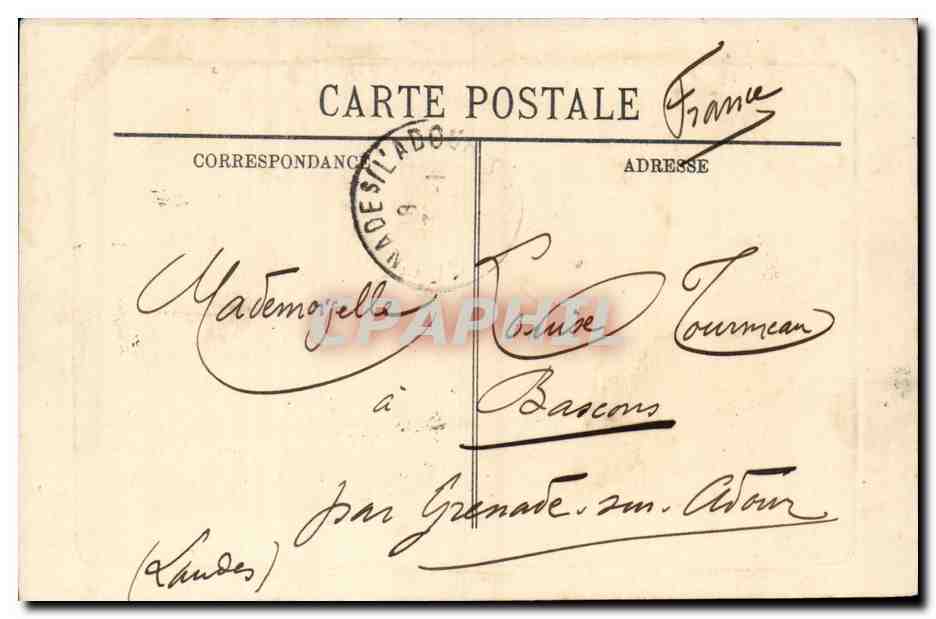 CARTE POSTALE France
CORRESPONDANCE ADRESSE
NADE S/L'ADOUR
Mademoiselle Louise Tourneau
à Bascons
par Grenade-sur-Adour
(Landes)
CPAPHIL